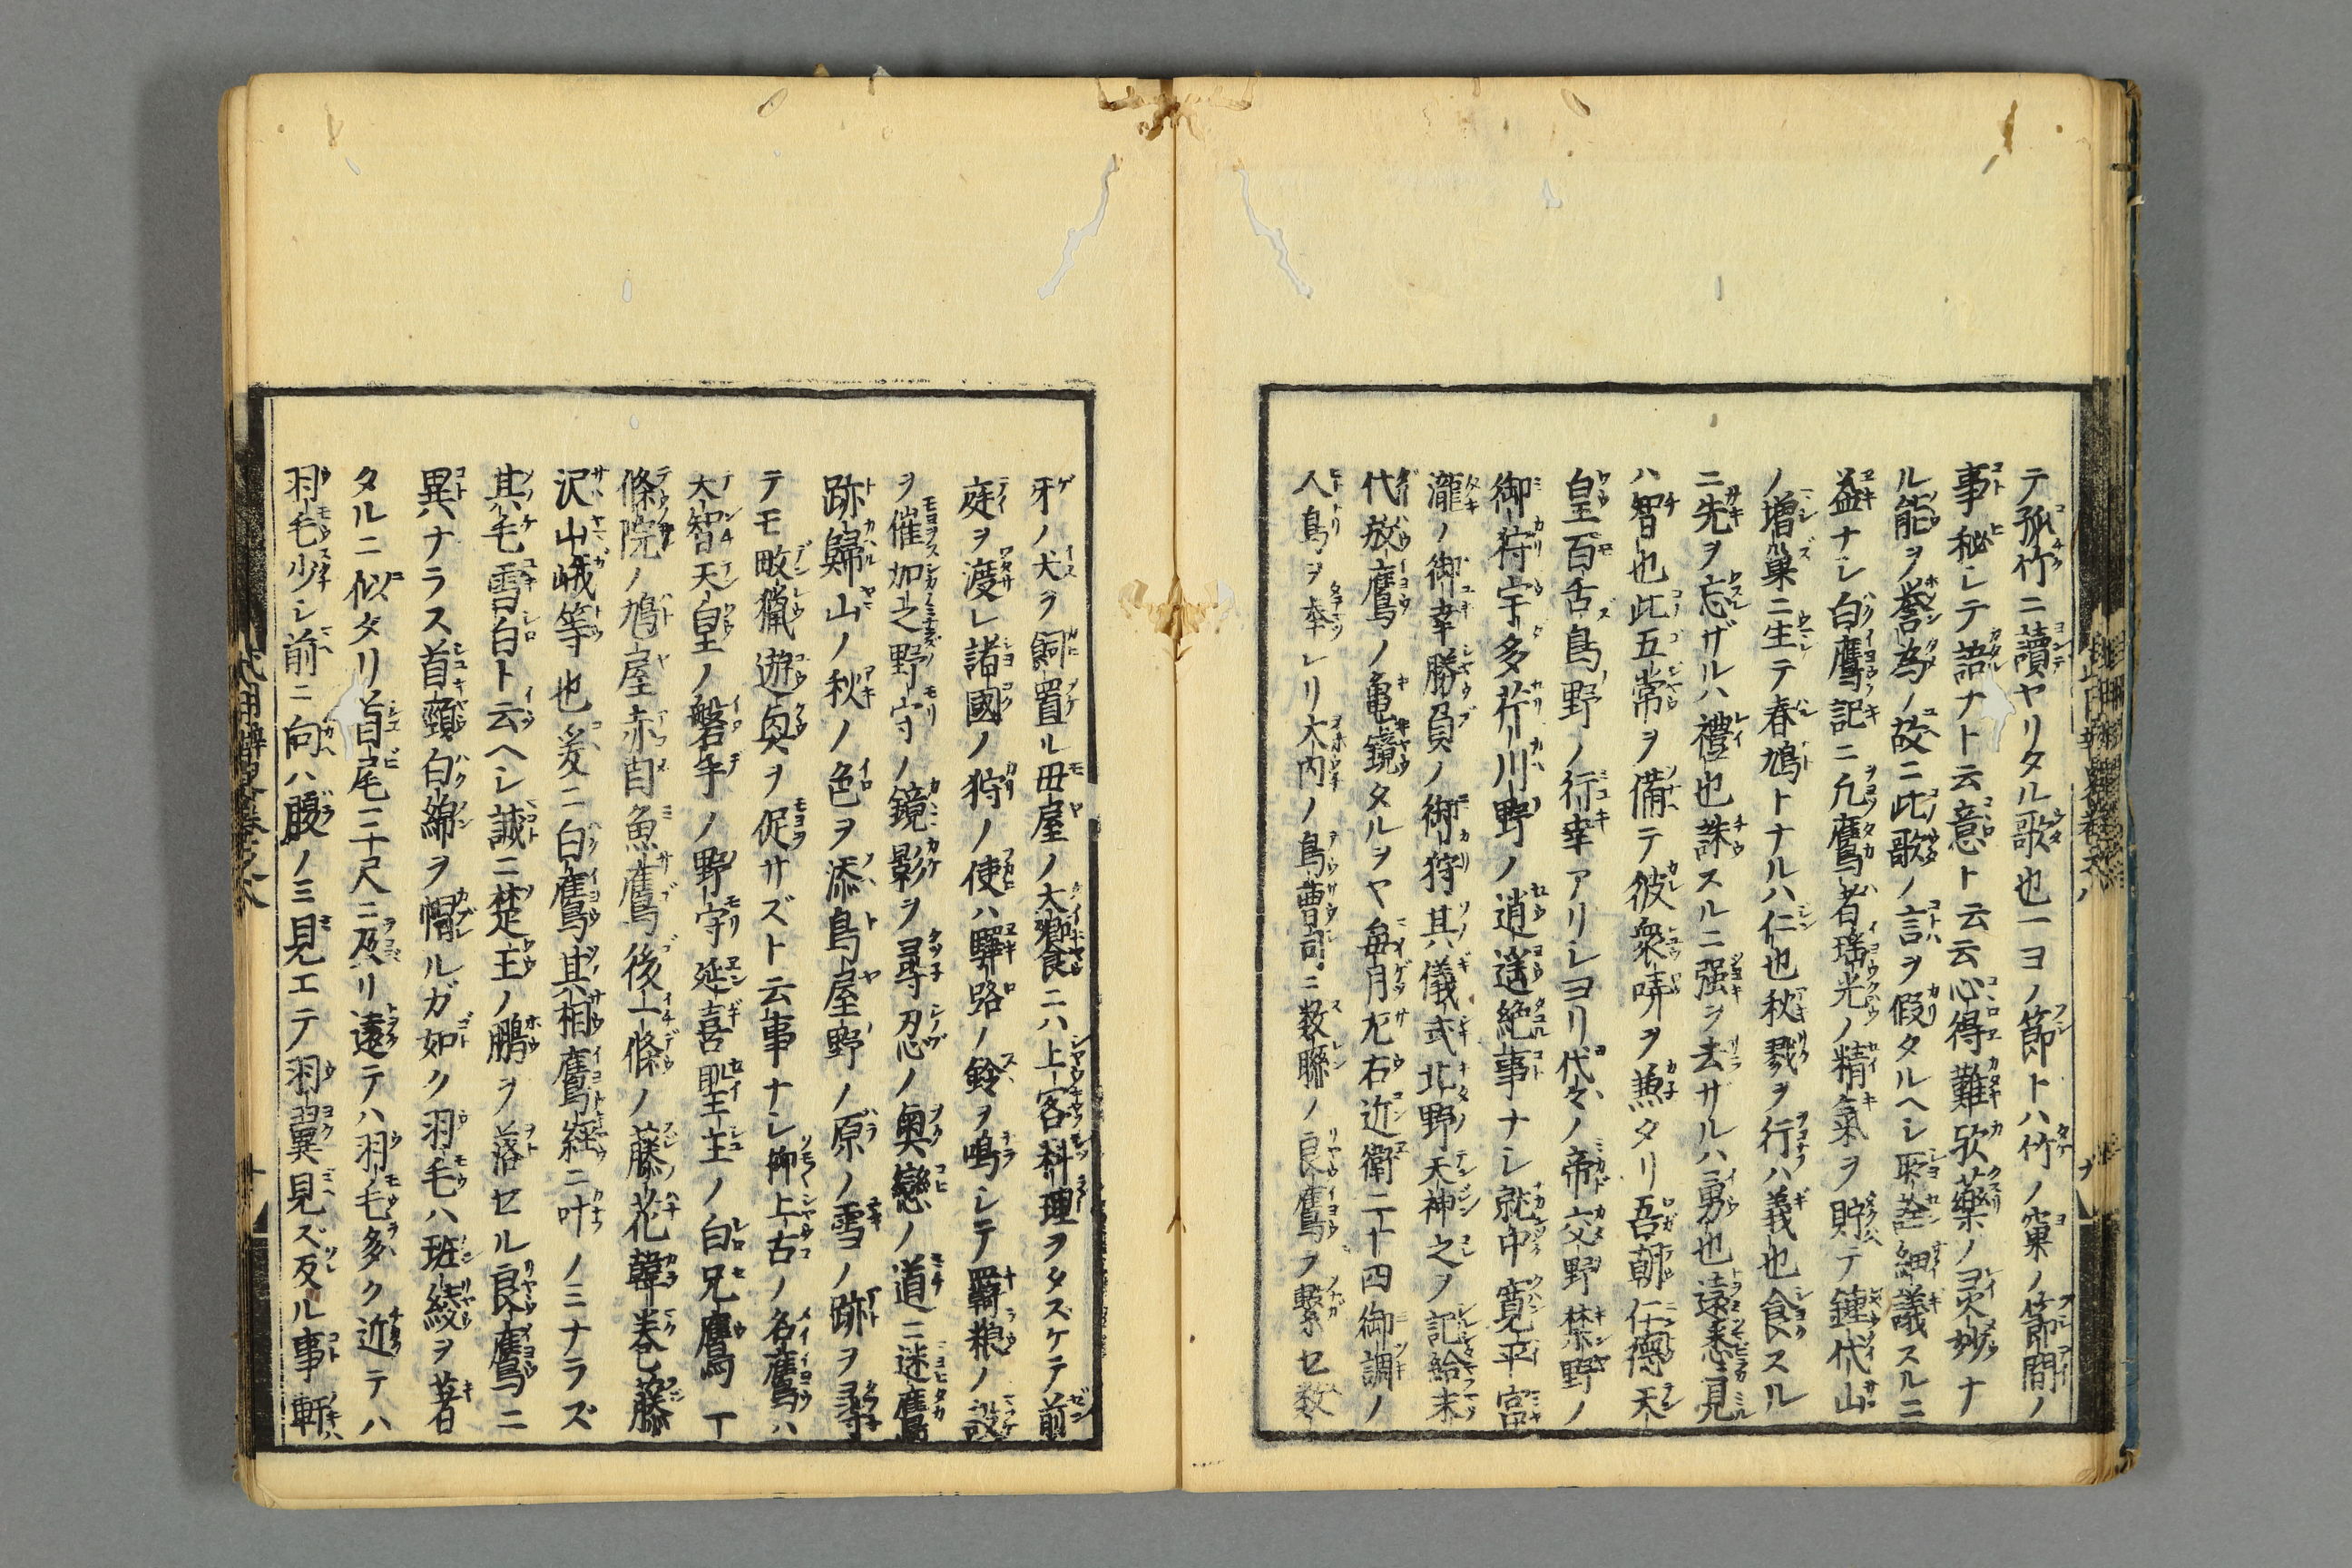 テ孤竹ニ讀ヤリタル歌也一ヨノ節トハ竹ノ窠ノ節間ノ
事秘シテ語ナト云意ト云云心得難欤藥ノ灵妙ナ
ル能ヲ誉為ノ故ニ此歌ノ言ヲ假タルヘシ所詮細議スルニ
益ナシ白鷹記ニ凢鷹者瑤光ノ精氣ヲ貯テ鍾代山
ノ増巣ニ生テ春鳩トナルハ仁也秋戮ヲ行ハ義也食スル
ニ先ヲ忘ザルハ禮也誅スルニ强ヲ去ザルハ勇也遠悉見
ハ智也此五常ヲ備テ彼衆ヲ兼タリ吾朝仁德天
皇百舌鳥野ノ行幸アリシヨリ代々ノ帝交野禁野ノ
御狩宇多芹川野ノ逍遥絶事ナシ就中寛平宮
瀧ノ御幸勝負ノ御狩其儀式北野天神之ヲ記給末
代放鷹ノ亀鏡タルヲヤ毎月左右近衛二十四御調ノ
人鳥ヲ奉レリ大内ノ鳥曹司ニ数聯ノ良鷹ヲ繋セ数
牙ノ犬ヲ飼置ル毋屋ノ大饗食ニハ上客料理ヲタスケテ前
庭ヲ渡レ諸國ノ狩ノ使ハ驛路ノ鈴ヲ鳴シテ羇粮ノ設
ヲ催加之野守ノ鏡影ヲ尋忍ノ奥戀ノ道ニ迷鷹
跡歸山ノ秋ノ色ヲ添鳥屋野ノ原ノ雪ノ跡ヲ尋
テモ畋獵遊奥ヲ促サズト云事ナシ御上古ノ名鷹ハ
天智天皇ノ磐手ノ野守延喜聖主ノ白兄鷹一
條院ノ鳩屋赤目魚鷹後一條ノ藤花韓巻藤
沢山峨等也爰ニ白鷹其相鷹經ニ叶ノミナラズ
其毛雪白ト云ヘシ誠ニ楚王ノ鵬ヲ落セル良鷹ニ
異ハナラス首頸白綿ヲ帽ルガ如ク羽毛ハ班綾ヲ著
タルニ似タリ首尾三十尺ニ及リ遠テハ羽毛多ク近テハ
羽毛少シ前ニ向ハ腹ノミ見エテ羽翼見ズ反ル事軒